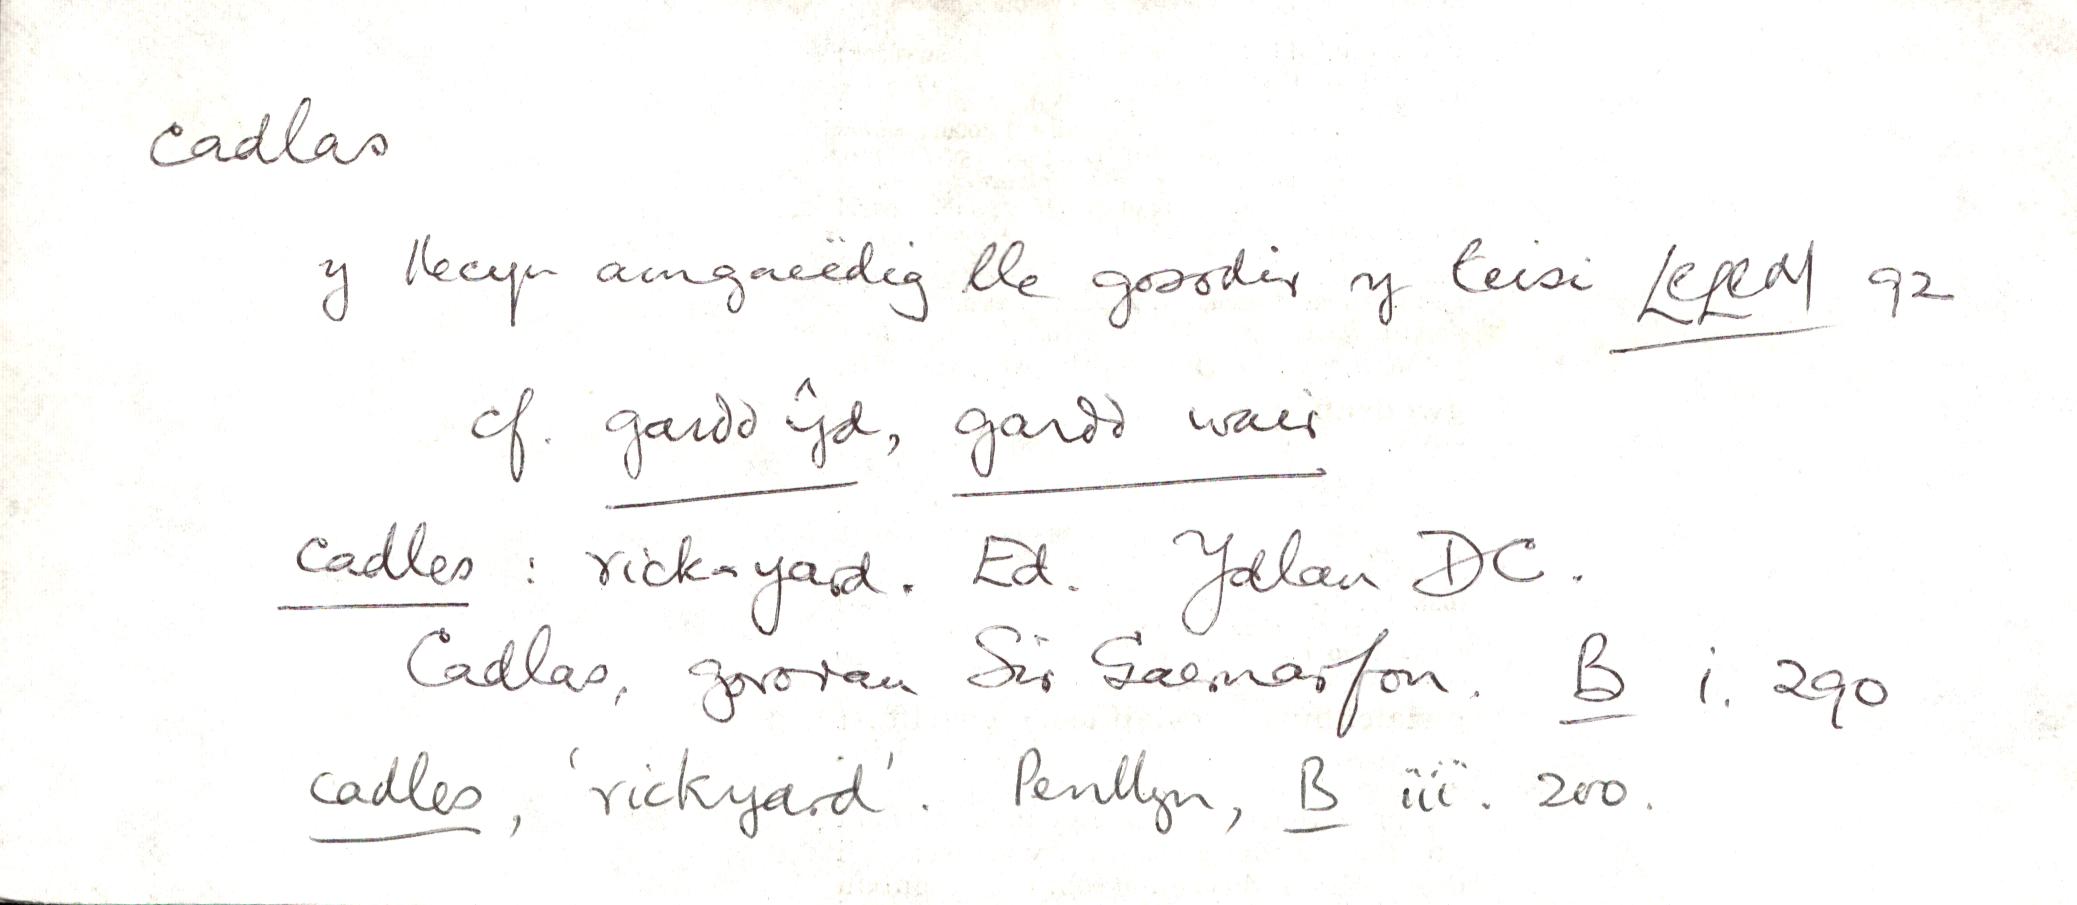 cadlas
y llecyn amgaeëdig lle gosodir y teisi LlLlM 92
cf. gardd ŷd, gardd wair
cadles : rick-yard. Ed. Ydlan DC.
Cadlas, gororau Sir Gaernarfon. B i. 290
cadles, 'rickyard'. Penllyn, B iii. 200.